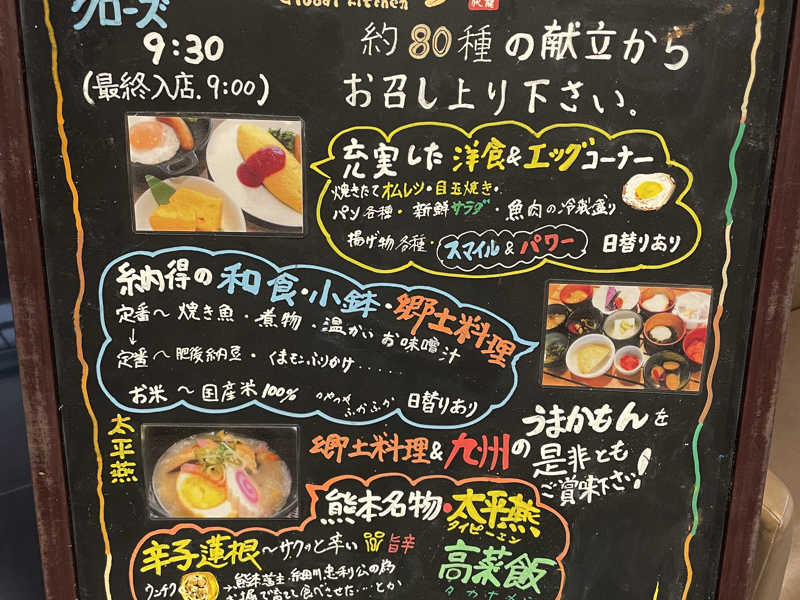 Global Kitchen
クローズ
9:30
(最終入店.9:00)
約80種の献立から
お召し上り下さい。
充実した洋食&エッグコーナー
焼きたてオムレツ・目玉焼き・
パン各種・新鮮サラダ・魚肉の冷製盛り
揚げ物各種・スマイル&パワー 日替りあり
納得の和食・小鉢・郷土料理
定番〜焼き魚・煮物・温かいお味噌汁
↓
定番〜肥後納豆・くまモンふりかけ......
お米〜国産米100% つやつやふかふか 日替りあり
太平燕
郷土料理&九州の
うまかもんを
是非とも
ご賞味下さい!
熊本名物・太平燕
タイピーエン
辛子蓮根〜サクッと辛い 旨辛
高菜飯
ウンチク
熊本藩主・細川忠利公の為
食べさせた....とか